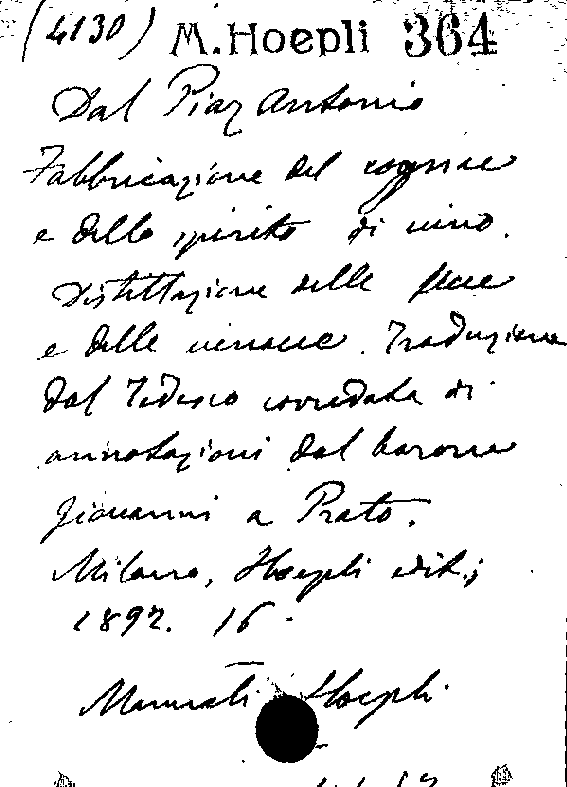 (4130) M. Hoepli 364
Dal Piaz Antonio
Fabbricazione del cognac
e dello spirito di vino.
Distillazione delle fecce
e delle vinacce. Traduzione
dal Tedesco corredata di
annotazioni dal barone
Giovanni a Prato.
Milano, Hoepli edit.;
1892. 16
Manuali Hoepli